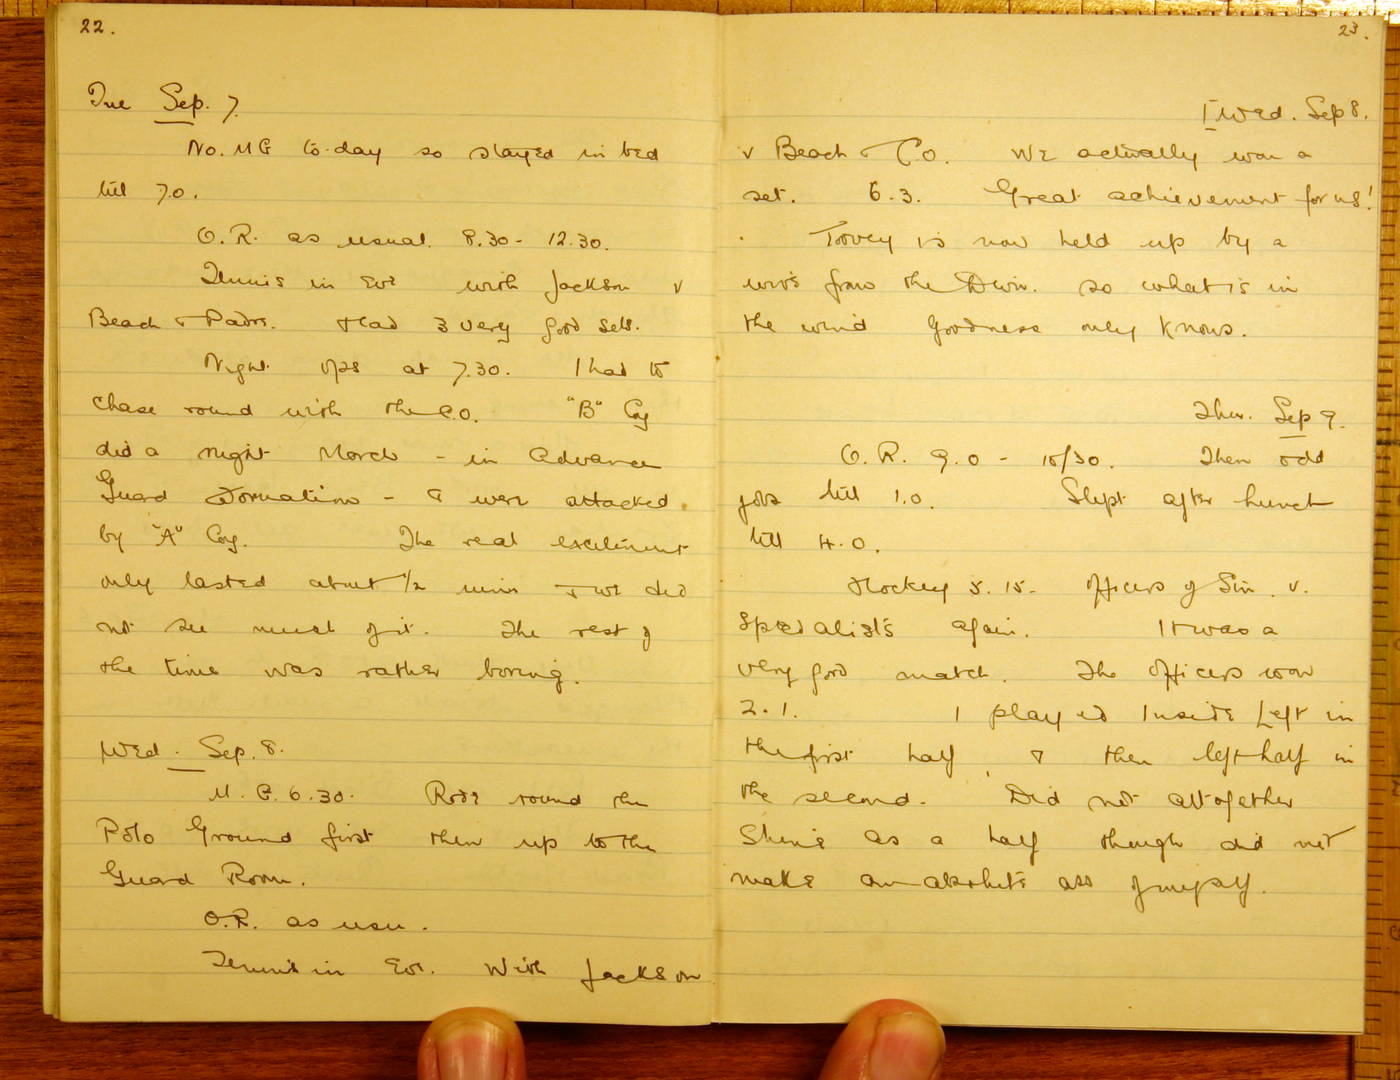 22.
Tue Sep. 7.
No. MG to-day so stayed in bed
till 7.0.
O.R. as usual. 8.30 - 12.30.
Tennis in Eve with Jackson v
Beach & Padre. Had 3 very good sets.
Night ops at 7.30. I had to
chase round with the C.O. "B" Coy
did a night March - in Advance
Guard Formation - & were attacked
by "A" Coy. The real excitement
only lasted about 1/2 min & we did
not see much of it. The rest of
the time was rather boring.
Wed. Sep. 8.
M.G. 6.30. Rode round the
Polo Ground first then up to the
Guard Room.
O.R. as usu.
Tennis in Eve. With Jackson
23.
Wed. Sep 8.
v Beach & Co. We actually won a
set. 6.3. Great achievement for us!
Tovey is now held up by a
wire from the Divn. so what is in
the wind Goodness only knows.
Thur. Sep 9.
O.R. 9.0 - 10/30. Then odd
jobs till 1.0. Slept after lunch
till 4.0.
Hockey 5.15. Officers v.
Specialists again. It was a
very good match. The Officers won
2.1. I played Inside Left in
the first half, & then left half in
the second. Did not altogether
Shine as a half though did not
make an absolute ass of myself.